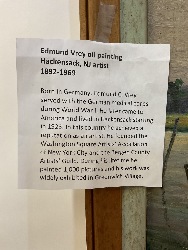 Edmund Vrey oil painting
Hackensack, NJ artist
1892-1969
Born in Germany, Edmund C. Vrey
served with the German medical corps
during World War I. He later came to
America and lived in Hackensack starting
in 1925. In this country he achieved a
reputation as an artist. He founded the
Washington Square Artists' Association
of New York City and the Bergen County
Artists' Guild. During his lifetime he
painted 1,600 pictures and his work was
widely exhibited in Greenwich Village.